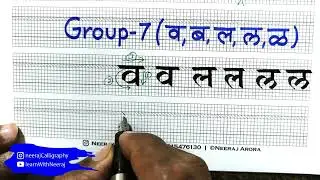 Group-7 (व, ब, ल, ल, ळ)
व व ल ल ल ल
5476130 | ©Neeraj Arora
neerajCalligraphy
learnWithNeeraj